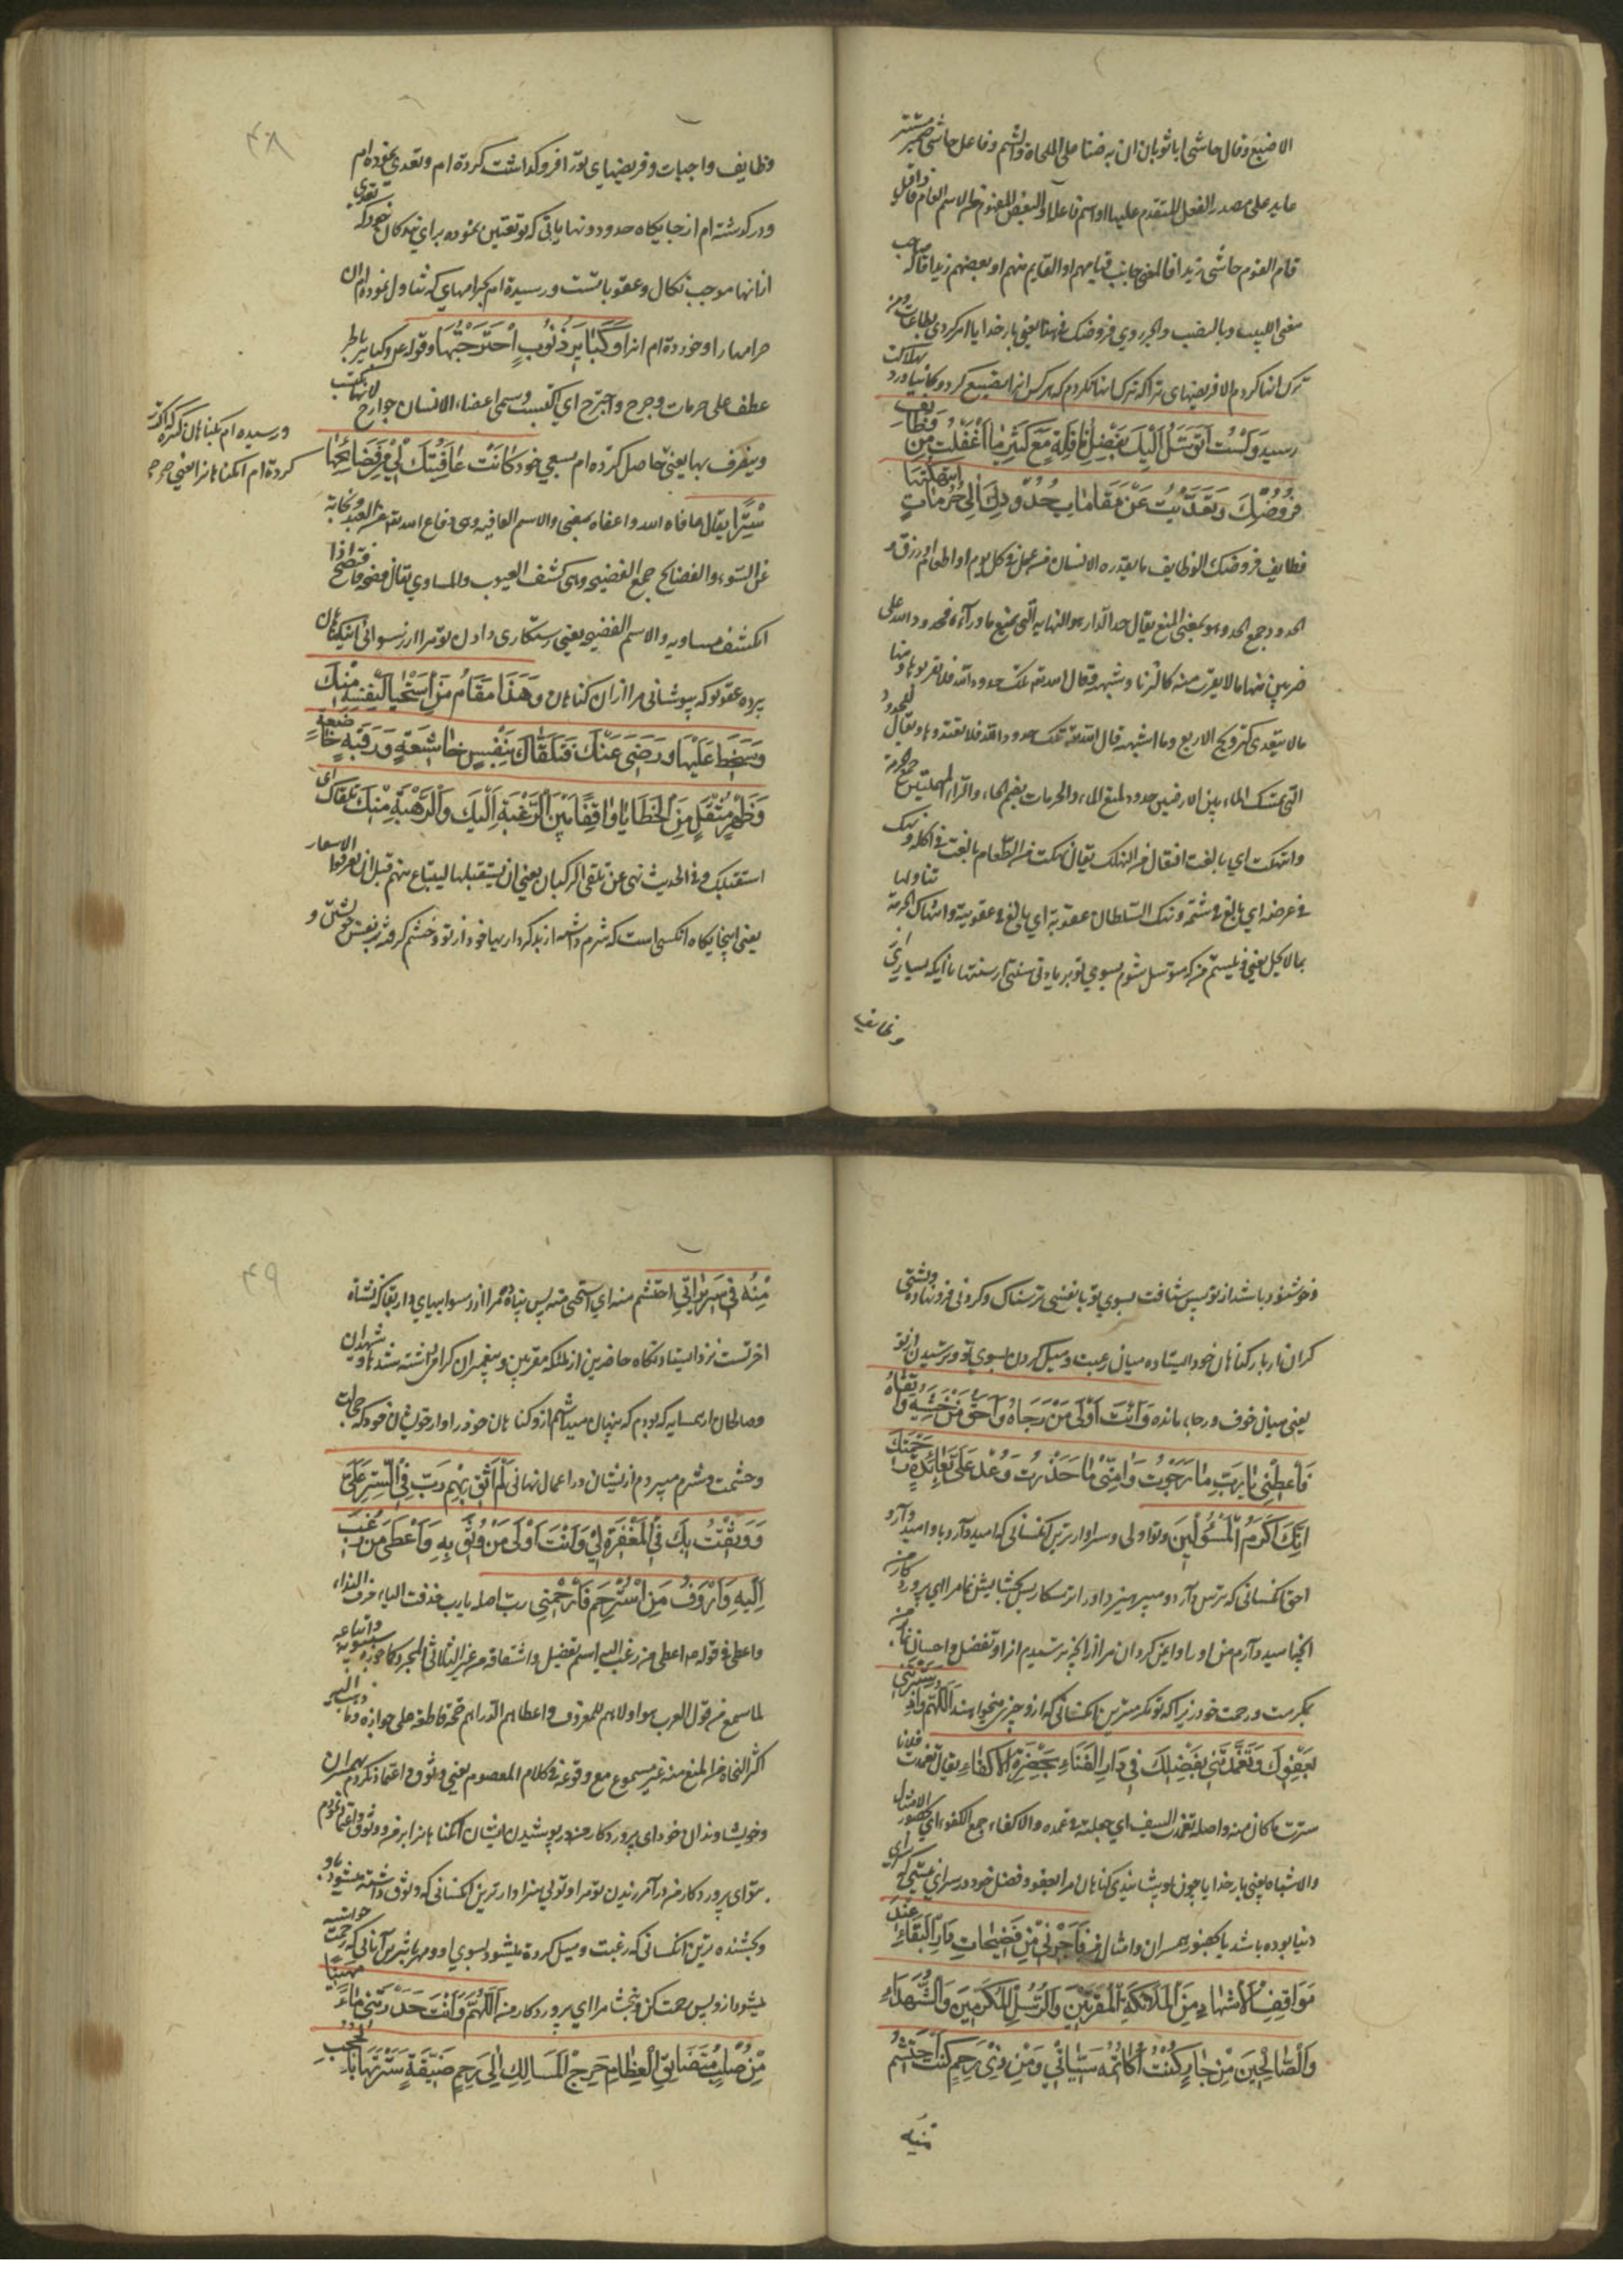 الاضبع وقال حاشى ابا ثوبان ان به ضنا على الملحاة والشتم وفاعل حاشى ضمير مستتر
عايد على مصدر الفعل المتقدم عليها او اسم فاعله او البعض المفهوم من الاسم العام فاذا قيل
قام القوم حاشى زيدا فالمعنى جانب قيامهم او القايم منهم او بعضهم زيدا قاله صاحب
مغنى اللبيب وبالنصب والجر روي فروضك
ترك انها كردم الا فريضهاى ترا كه ترك انها نكردم كه هر كس انرا تضييع كرد
رسيد وَلَسْتُ اَتَوَسَّلُ اِلَيْكَ بِفَضْلِ نَافِلَةٍ مَعَ كَثِيرِ مَا اَغْفَلْتُ مِنْ وَظَائِفِ
فُرُوضِكَ وَتَعَدَّيْتُ عَنْ مَقَامَاتِ حُدُودِكَ اِلَى حُرُمَاتٍ انتهكتها
وظايف فروضك الوظايف ما يقدره الانسان من عمل فى كل يوم او اطعام او رزق
الحدود جمع الحد وهو بمعنى المنع يقال حد الدار هو النهاية التى يمنع ما وراءه فحدود الله على
ضربين منها ما لا يقرب منه كالزنا وشبهه قال الله تعالى تلك حدود الله فلا تقربوها ومنها
ما لا يتعدى كتزويج الاربع وما اشبهه قال الله تعالى تلك حدود الله فلا تعتدوها ويقال للحدود
التى تمسك الماء بين الارضين حدود لمنع الماء والحرمات بضم الحاء والراء المهملتين جمع الحرمة
وانتهكت اي بالغت افتعال من النهك يقال نهكت من الطعام بالغت فى اكله ونهك تناولها
فى عرضه اي بالغ فى شتمه ونهك السلطان عقوبة اي بالغ فى عقوبته وانتهاك الحرمة
بما لا يحل يعنى ونيستم من كه متوسل شوم بسوي تو بزيادتى سنتى از سنتها با انكه بسيارى
وظايف
۴۸
وظايف واجبات و فريضهاى ترا فرو كذاشت كرده ام و تعدي نموده ام
و در كذشته ام از جايكاه حدود و نهاياتى كه تو تعيين نموده براي بندكان خود كه تعدي
از انها موجب نكال و عقوباتست و رسيده ام بحرامهاي كه تناول نموده ام ان
حرامها را و خورده ام انرا وَكَبَائِرِ ذُنُوبٍ اِجْتَرَحْتُهَا وقوله عم وكبائر بالجر
عطف على حرمات وجرح واجترح اي اكتسب وسمى اعضاء الانسان جوارح لانها تكتسب
ويتصرف بها يعنى حاصل كرده ام بسعي خود كَانَتْ عَافِيَتُكَ لِي مِنْ فَضَائِحِهَا
سِتْرًا يقال عافاه الله واعفاه بمعنى والاسم العافيه وهى دفاع الله تعالى عن العبد
عن السوء والفضائح جمع الفضيحه وهى كشف العيوب والمساوي يقال فضحه فافتضح اذا
انكشف مساويه والاسم الفضيحه يعنى رستكارى دادن تو مرا از رسوائى اينكناهان
پرده عفو تو كه پوشانى مرا از ان كناهان وَهَذَا مَقَامُ مَنِ اسْتَحْيَا لِنَفْسِهِ مِنْكَ
وَسَخَطَ عَلَيْهَا وَرَضِىَ عَنْكَ فَتَلَقَّاكَ بِنَفْسٍ خَاشِعَةٍ وَرَقَبَةٍ خَاضِعَةٍ
وَظَهْرٍ مُثْقَلٍ مِنَ الْخَطَايَا وَاقِفًا بَيْنَ الرَّغْبَةِ اِلَيْكَ وَالرَّهْبَةِ مِنْكَ تلقاك اى
استقبلك وفى الحديث نهى عن تلقى الركبان يعنى ان يستقبلها ليبتاع منهم قبل ان يعرفوا الاسعار
يعنى اينجايكاه انكسى است كه شرم داشته از بد كردارىهاى خود از تو و خشم كرفته بر نفس خويشتن و
ورسيده ام بكناهان
كرده ام انكناهانرا يعنى
وخوشنود باشد از تو پس شتافت بسوي تو با نفسى ترسناك و كردنى فرو نهاده و پشتى
كران از بار كناهان خود ايستاده ميان رغبت و ميل كردن بسوي تو و ترسيدن از تو
يعنى ميان خوف و رجا مانده وَاَنْتَ اَوْلَى مَنْ رَجَاهُ وَاَحَقُّ مَنْ خَشِيَهُ وَاتَّقَاهُ
فَاَعْطِنِى يَا رَبِّ مَا رَجَوْتُ وَامِنِّى مَا حَذِرْتُ وَعُدْ عَلَىَّ بِعَائِدَةِ رَحْمَتِكَ
اِنَّكَ اَكْرَمُ الْمَسْئُولِينَ و تو اولى و سزاوارترين انكسانى كه اميد دارد باو اميد دارد و
احق انكسانى كه ترس دارد و ميپرهيزد او را و ترسكار پس بخشايش نما مرا اي پروردكار من
انچه اميد دارم من او را و ايمن كردان مرا از انچه ترسيدم انرا و تفضل و احسان نما بمن
بمكرمت و رحمت خود زيرا كه تو مكرمترين انكسانى كه از و چيزى ميخواهند اَللّهُمَّ وَاِذْ سَتَرْتَنِى
بِعَفْوِكَ وَتَغَمَّدْتَنِى بِفَضْلِكَ فِى دَارِ الْفَنَاءِ بِحَضْرَةِ الْاَكْفَاءِ يقال تغمدت فلانا
سترت ما كان منه واصله تغمد السيف اي جعلته فى غمده والاكفاء جمع الكفو اي بحضور الامثال
والاشباه يعنى بار خدايا چون پوشانيدى كناهان مرا بعفو و فضل خود در سراي نيستى كه سراى
دنيا بوده باشد بحضور همسران و امثال من فَاَجِرْنِى مِنْ فَضِيحَاتِ دَارِ الْبَقَاءِ عِنْدَ
مَوَاقِفِ الْاَشْهَادِ مِنَ الْمَلَائِكَةِ الْمُقَرَّبِينَ وَالرُّسُلِ الْمُكَرَّمِينَ وَالشُّهَدَاءِ
وَالصَّالِحِينَ مِنْ جَارٍ كُنْتُ اُكَاتِمُهُ سَيِّئَاتِى وَمِنْ ذِى رَحِمٍ كُنْتُ اَحْتَشِمُ
منه
۴۹
مِنْهُ فِى سَرِيرَاتِى احتشم منه اي استحيى منه پس پناه ده مرا از رسوائيهاي دار بقا كه نشاة
اخرتست نزد ايستادنكاه حاضرين از ملئكه مقربين و پيغمبران كرامى داشته شدها و شهيدان
و صالحان از همسايه كه بودم كه پنهان ميداشتم از و كناهان خود را و از خويشان خود كه
و حشمت و شرم ميبردم از ايشان در اعمال نهانى لَمْ اَثِقْ بِهِمْ رَبِّ فِى السِّتْرِ عَلَىَّ
وَوَثِقْتُ بِكَ فِى الْمَغْفِرَةِ لِى وَاَنْتَ اَوْلَى مَنْ وُثِقَ بِهِ وَاَعْطَى مَنْ رُغِبَ
اِلَيْهِ وَاَرْءَفُ مَنِ اسْتُرْحِمَ فَارْحَمْنِى رب اصله يا رب فحذفت الياء حرف النداء
واعطى فى قوله عم اعطى من رغب اليه اسم تفضيل واشتقاقه من غير الثلاثى المجرد كما جوزه سيبويه واتباعه
لما سمع من قول العرب هو اولاهم للمعروف واعطاهم الدراهم حجة قاطعة على جوازه وما ذهب اليه
اكثر النحاة من المنع منه غير مسموع مع وقوعه فى كلام المعصوم يعنى وثوق و اعتماد نكردم بهمسران
و خويشاوندان خود اي پروردكار من در پوشيدن ايشان انكناهانرا بر من و وثوق و اعتماد نمودم
بتو اي پروردكار من در آمرزيدن تو مرا و تويى سزاوارترين انكسانى كه وثوق داشته ميشود باو
و بخشنده ترين انكسانى كه رغبت و ميل كرده ميشود بسوي او و مهربانترين آنانى كه رحمت خواسته
ميشود از و پس رحمت كن و بخشا مرا اي پروردكار من اَللّهُمَّ وَاَنْتَ حَدَرْتَنِى مَاءً مَهِينًا
مِنْ صُلْبٍ مُتَضَايِقِ الْعِظَامِ حَرِجِ الْمَسَالِكِ اِلَى رَحِمٍ ضَيِّقَةٍ سَتَرْتَهَا بِالْحُجُبِ